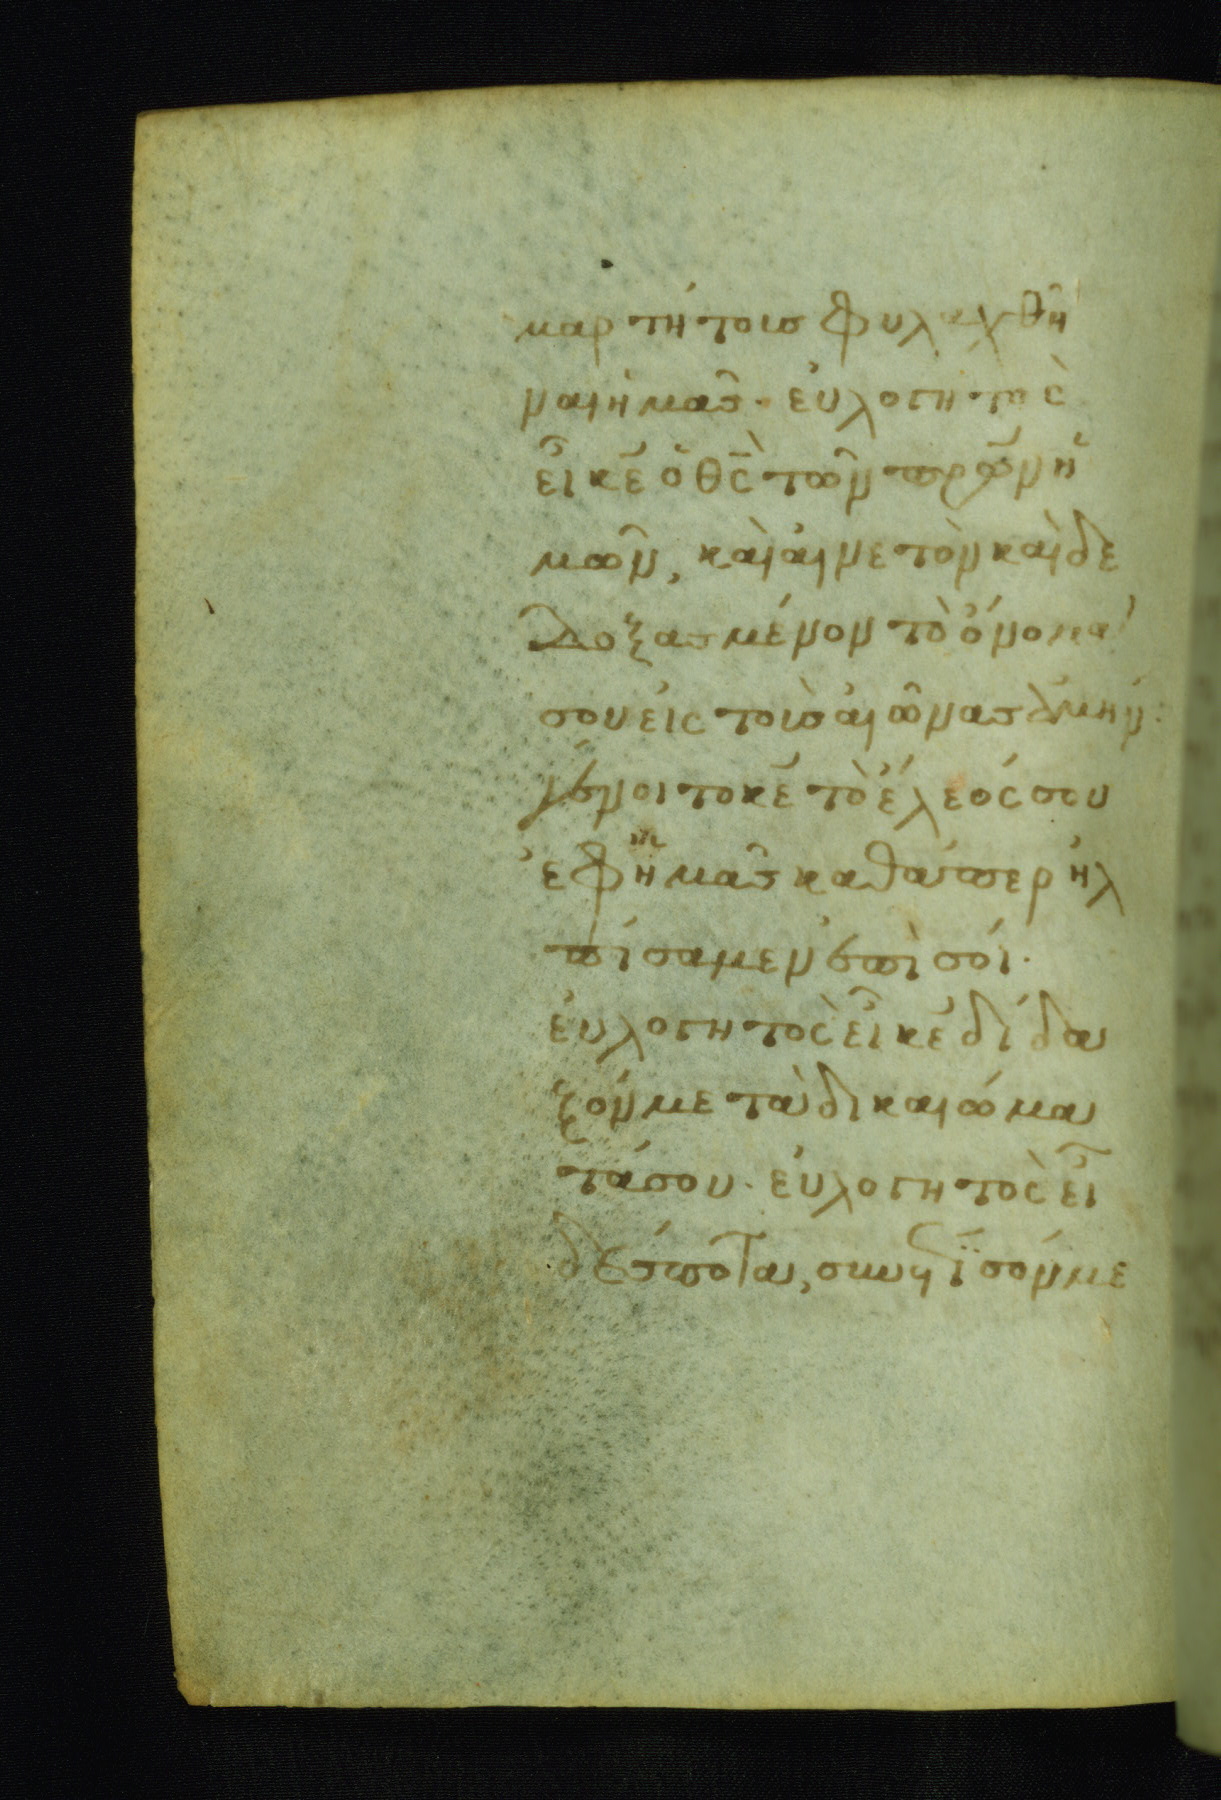 μαρτήτοισ φυλαχθῆ
ναι ἡμασ. εὐλογητὸς
εἶ κε ὁ θς τῶν πρων ἡ
μῶν, καὶ αἰνετὸν καὶ δε
δοξασμένον τὸ ὄνομα
σου εἰς τοὺσ αἰῶνασ ἀμήν:
γένοιτο κε τὸ ἔλεός σου
ἐφ ἡμᾶσ καθάπερ ἠλ
πίσαμεν ἐπὶ σοί.
ἐυλογητὸς εἶ κε δίδα
ξόν με τὰ δικαιώμα
τά σου. ἐυλογητὸς εἶ
δέσποτα, συνέτϊσόν με